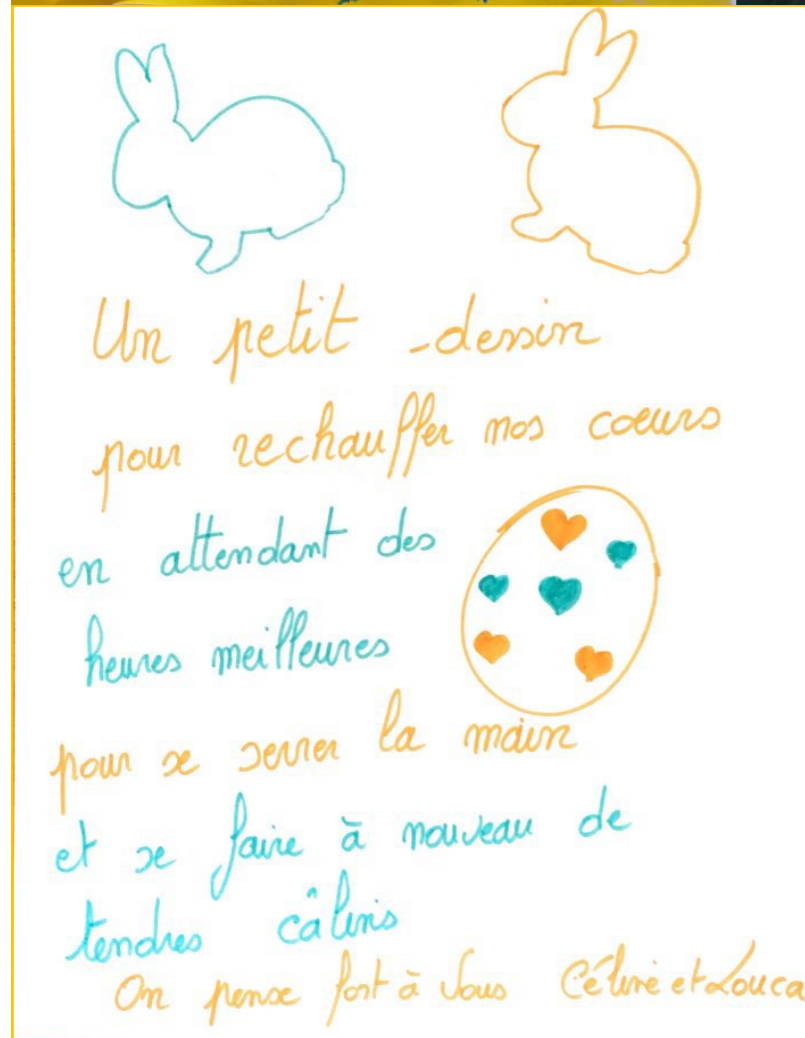 Un petit dessin
pour rechauffer nos coeurs
en attendant des
heures meilleures
pour se serrer la main
et se faire à nouveau de
tendres câlins
On pense fort à vous Céline et Louca